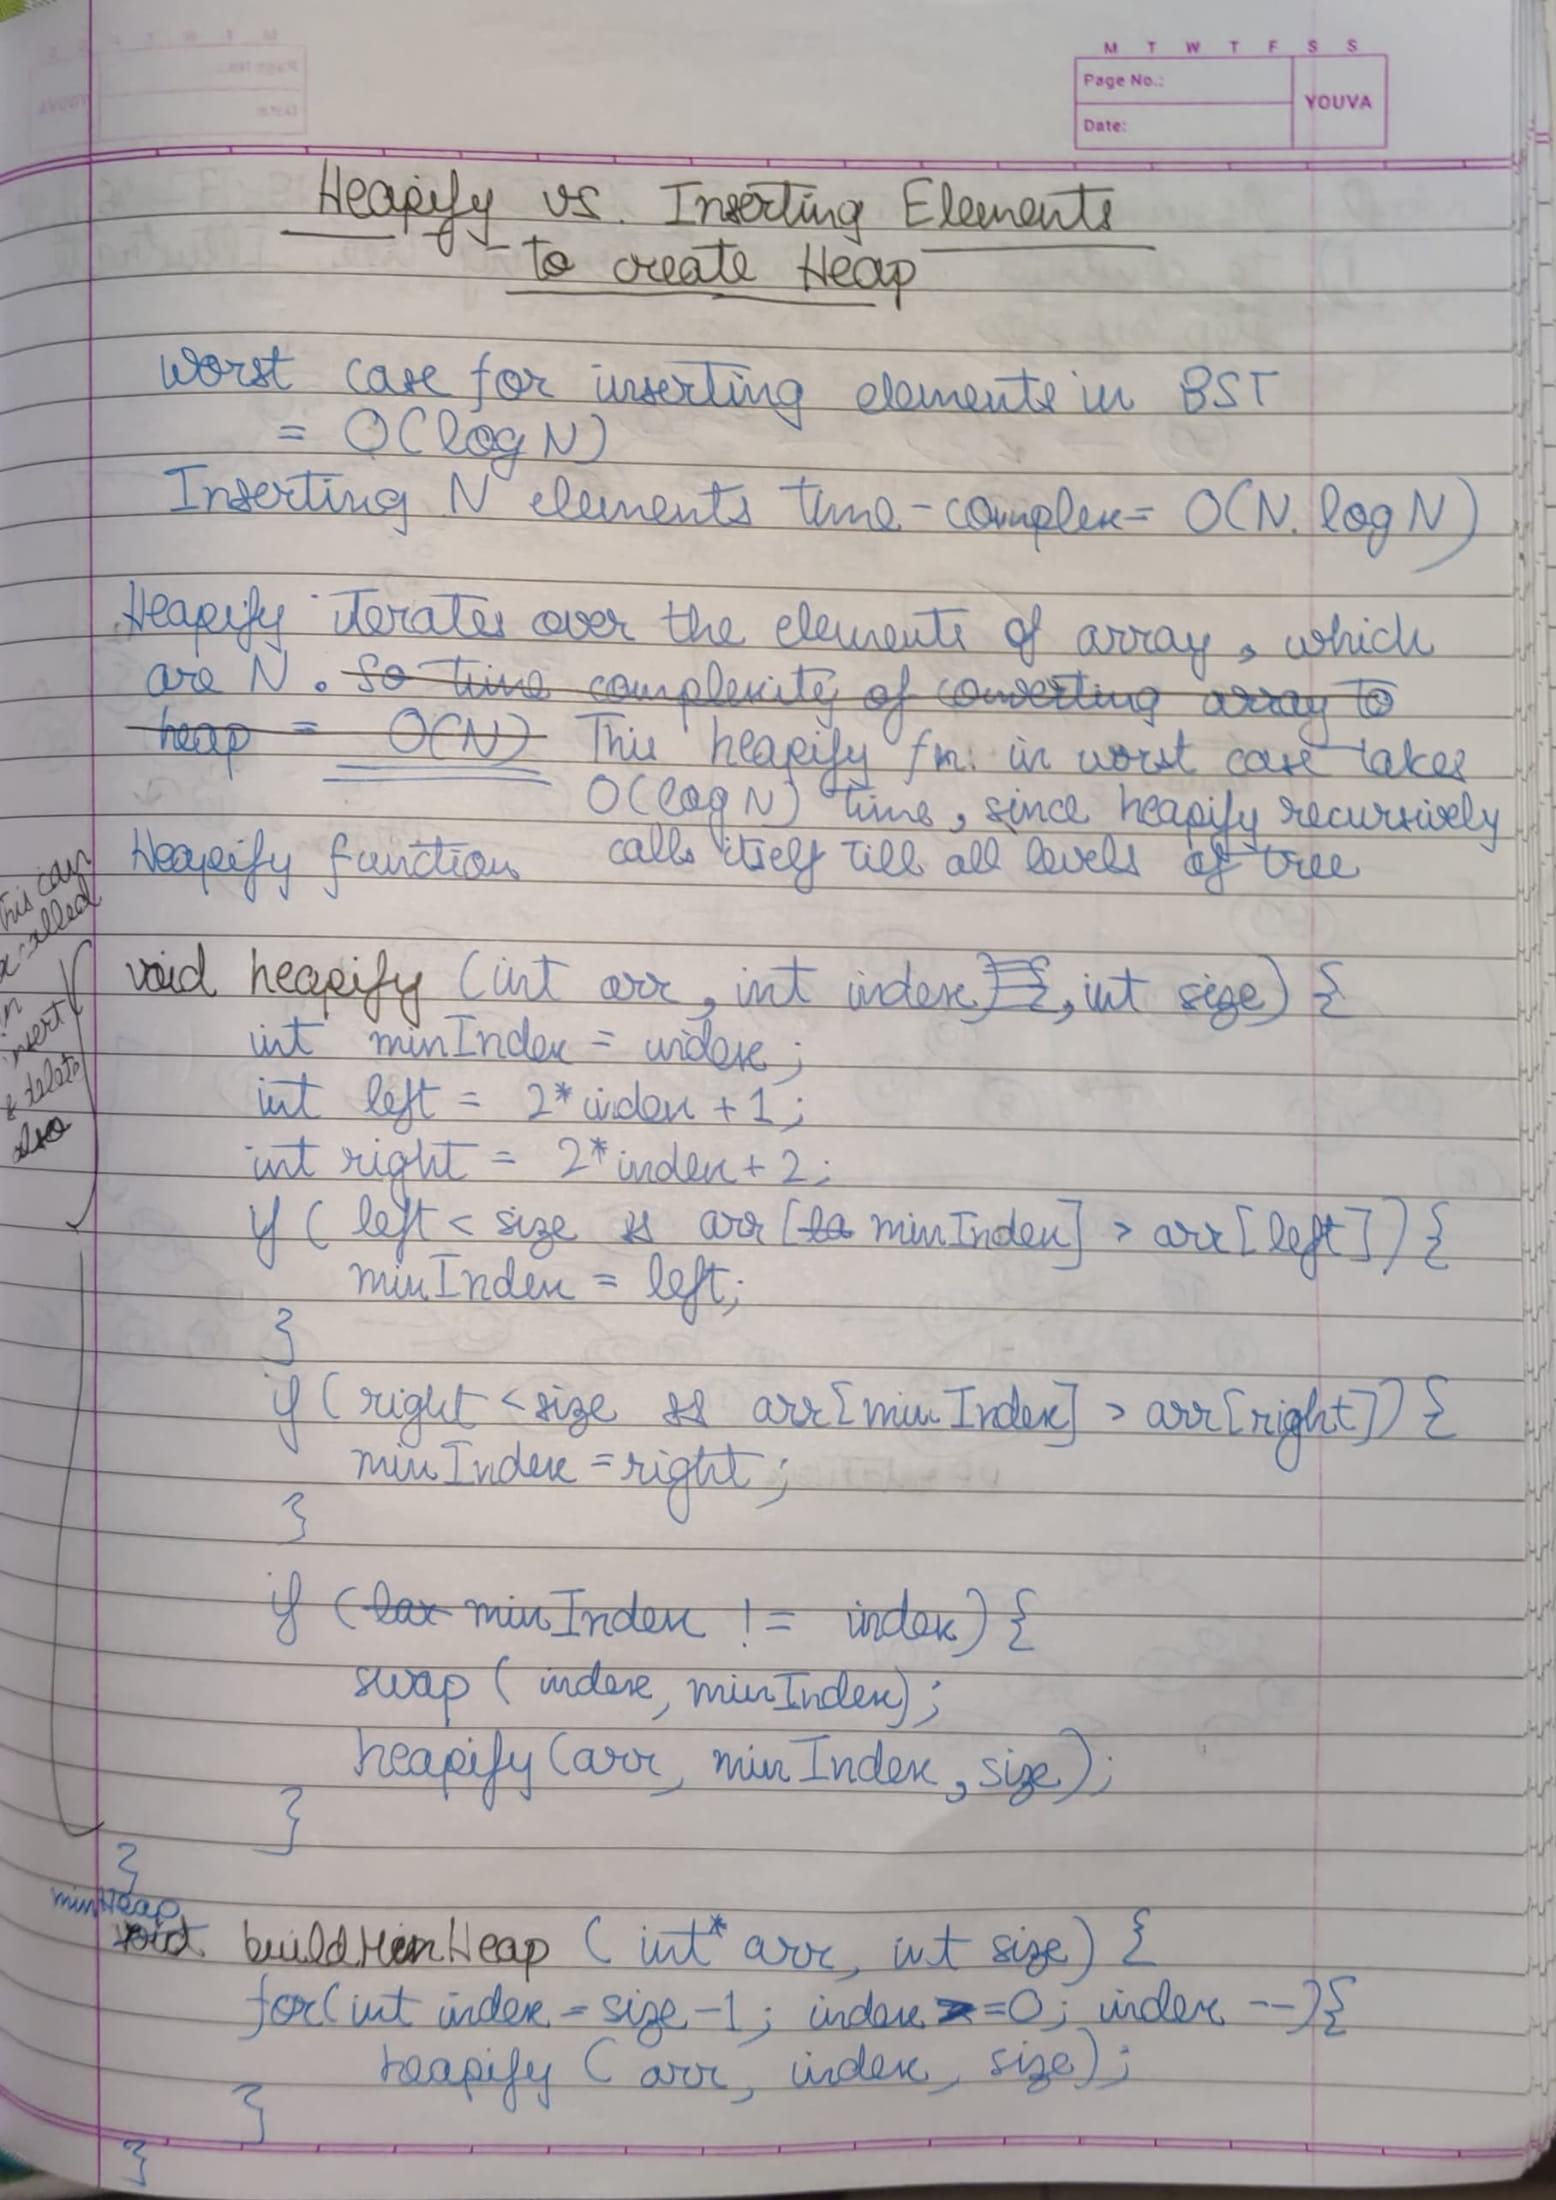 M T W T F S S
Page No.:
YOUVA
Date:
Heapify vs. Inserting Elements
to create Heap
Worst case for inserting elements in BST
= O(log N)
Inserting N elements time-complex= O(N. log N)
Heapify iterates over the elements of array, which
are N. So time complexity of converting array to
heap = O(N) This heapify fn. in worst case takes
O(log N) time, since heapify recursively
Heapify function calls itself till all levels of tree
This can
called
in
insert
& delete
also
void heapify (int arr, int index, int size) {
int minIndex = index;
int left = 2*index + 1;
int right = 2*index + 2;
if ( left < size && arr [ minIndex] > arr [left]) {
minIndex = left;
}
if ( right < size && arr[minIndex] > arr[right]) {
minIndex = right;
}
if ( minIndex != index) {
swap ( index, minIndex);
heapify (arr, minIndex, size);
}
}
minHeap
void buildMinHeap ( int* arr, int size) {
for(int index = size -1; index >=0; index --){
heapify ( arr, index, size);
}
}